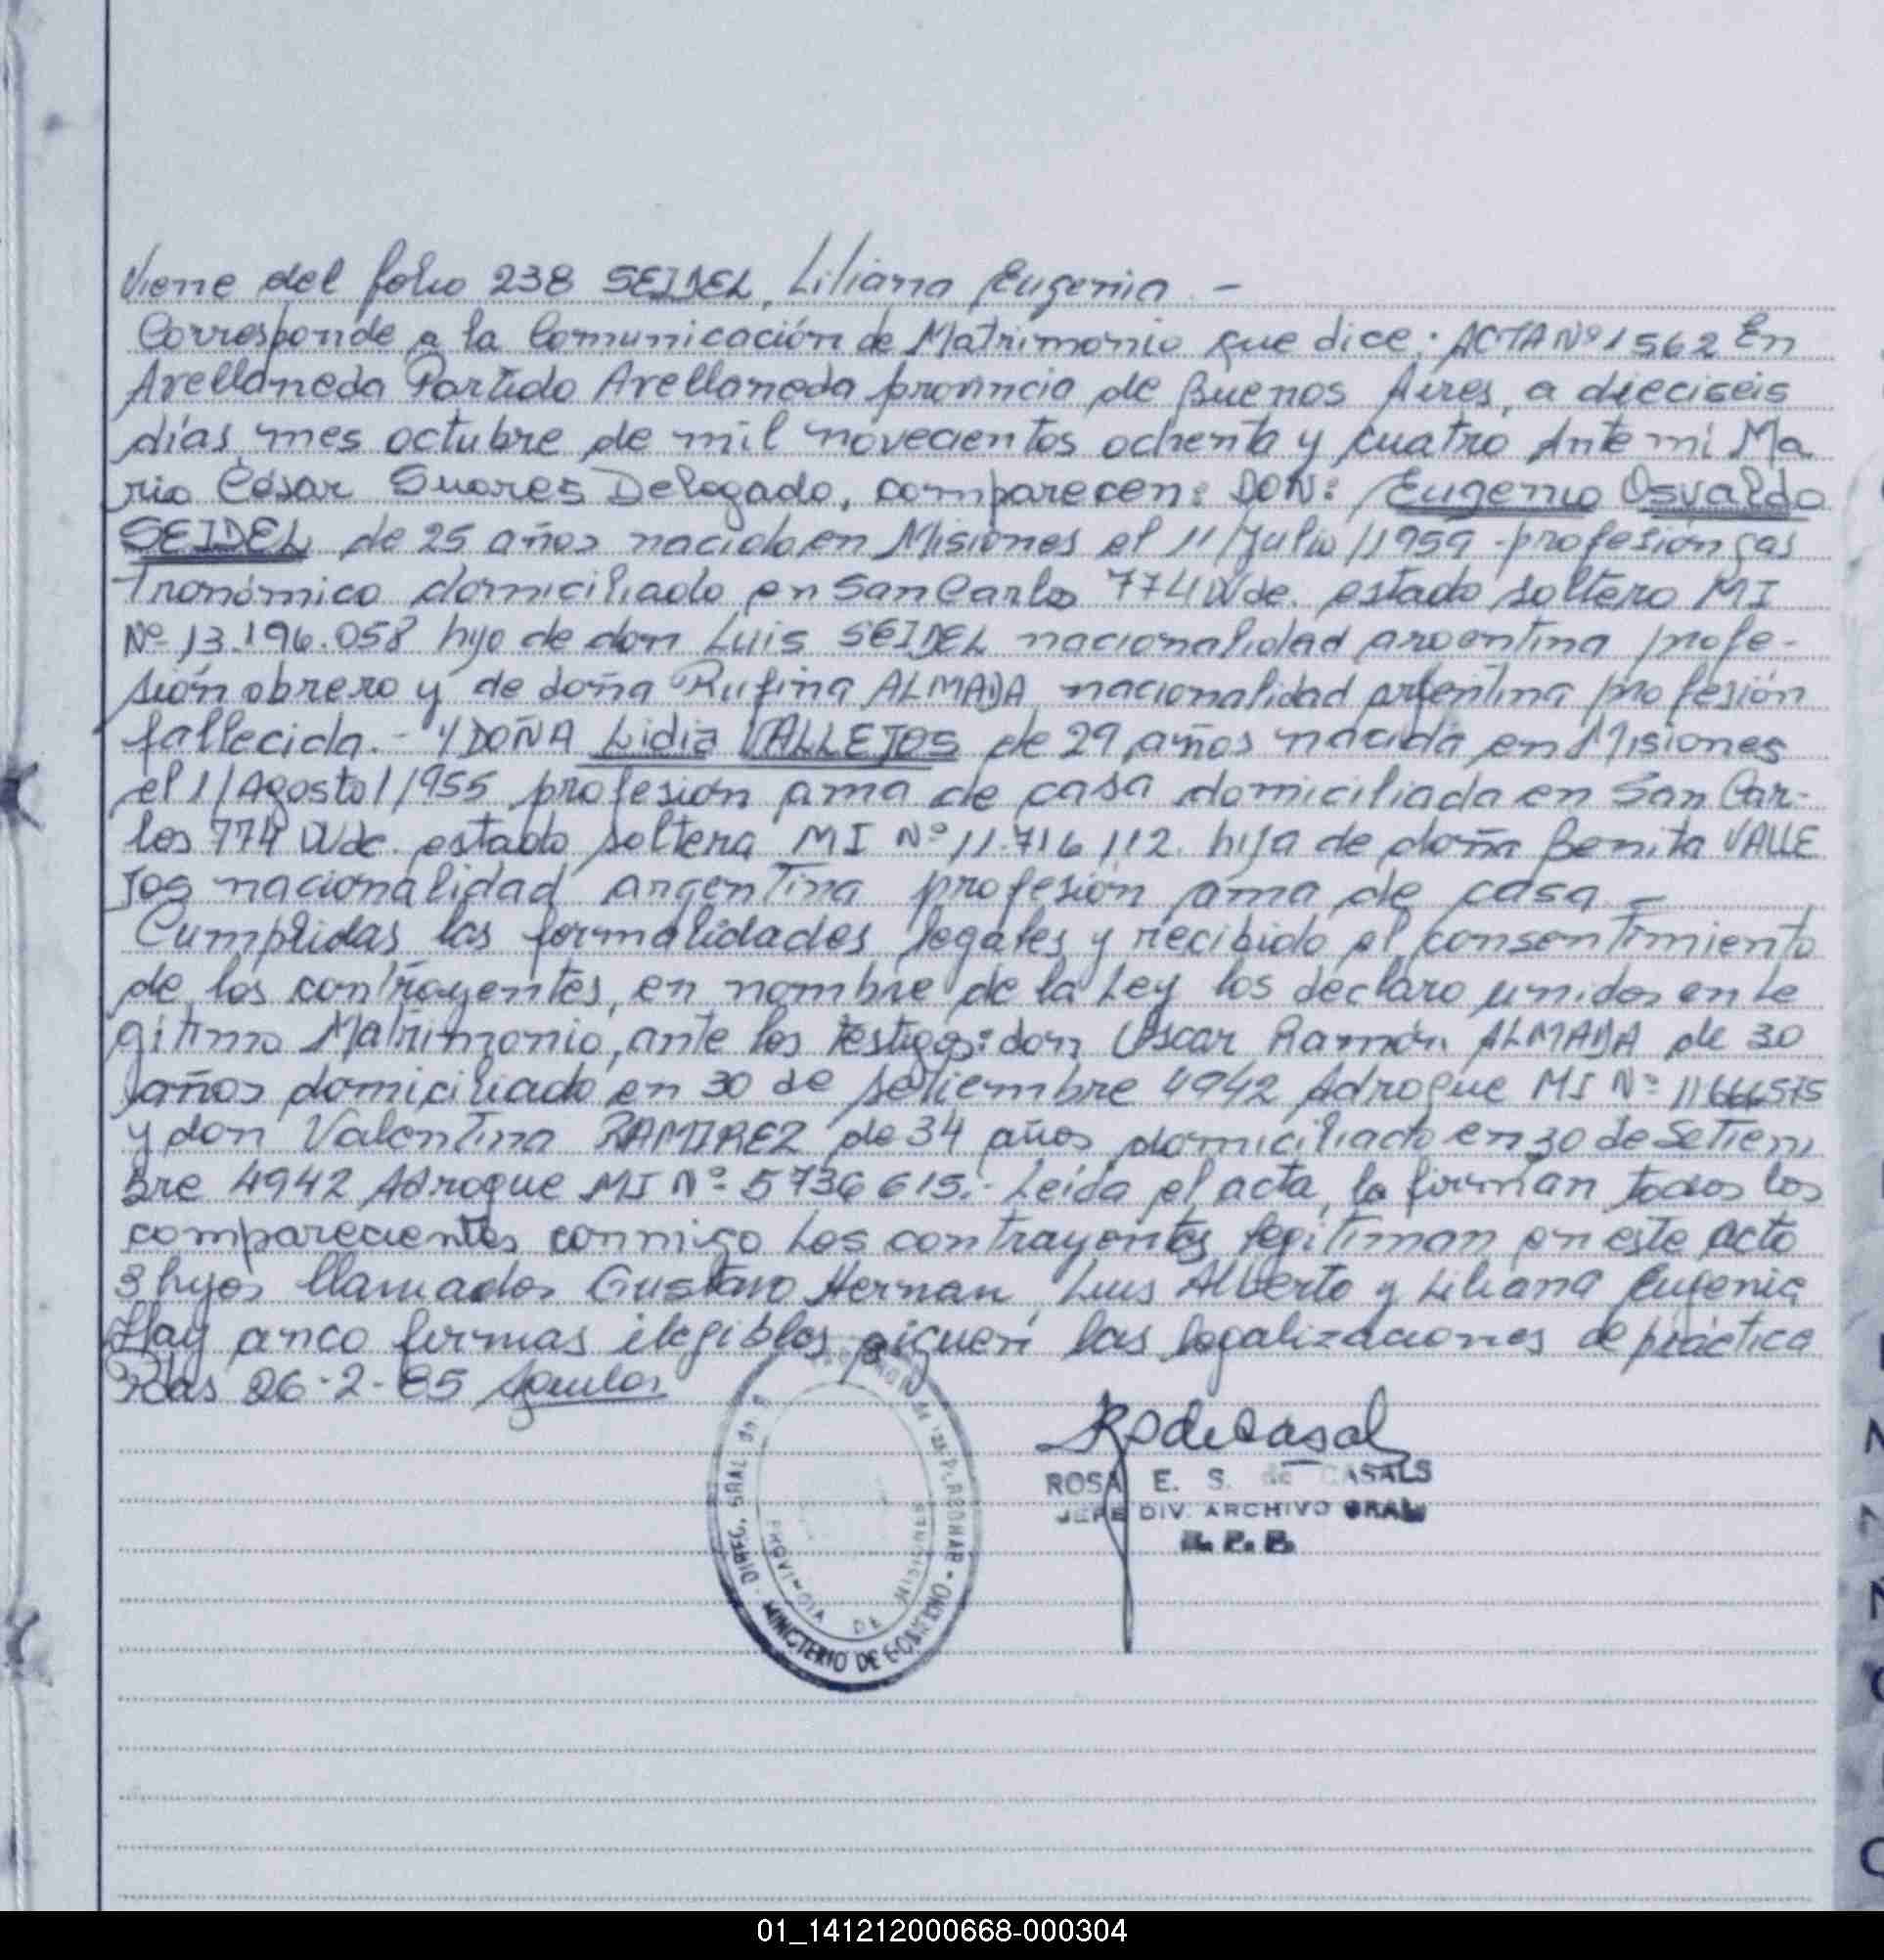 Viene del folio 238 SEIDEL, Liliana Eugenia. -
Corresponde a la Comunicación de Matrimonio que dice: ACTA Nº 1562 En
Avellaneda Partido Avellaneda provincia de Buenos Aires, a dieciseis
días, mes octubre de mil novecientos ochenta y cuatro Ante mí Ma
rio César Suares Delegado, comparecen: DON: Eugenio Osvaldo
SEIDEL de 25 años nacido en Misiones el 11/Julio/1959 - profesión gas
tronómico domiciliado en San Carlos 774 Wde. estado soltero MI
Nº 13.196.058 hijo de don Luis SEIDEL nacionalidad argentina profe-
sión obrero y de doña Rufina ALMADA nacionalidad argentina profesión
fallecida. - Y DOÑA Lidia VALLEJOS de 29 años nacida en Misiones
el 1/Agosto/1955 profesión ama de casa domiciliada en San Car-
los 774 Wde. estado soltera MI Nº 11.716.112. hija de doña Benita VALLE
JOS nacionalidad argentina profesión ama de casa. -
Cumplidas las formalidades legales y recibido el consentimiento
de los contrayentes, en nombre de la Ley los declaro unidos en le
gitimo Matrimonio, ante los testigos: don Oscar Ramón ALMADA de 30
años domiciliado en 30 de Setiembre 4942 Adrogue MI Nº 11666575
y don Valentina RAMIREZ de 34 años domiciliado en 30 de Setiem
bre 4942 Adrogue MI Nº 5736615.- Leída el acta, la firman todos los
comparecientes conmigo Los contrayentes legitiman en este acto
3 hijos llamados Gustavo Hernan, Luis Alberto y Liliana Eugenia
Hay cinco firmas ilegibles siguen las legalizaciones de práctica
Pdas 26-2-85
ROSA E. S. de CASALS
JEFE DIV. ARCHIVO GRAL
R. P. P.
MINISTERIO DE GOBIERNO
PROVINCIA DE MISIONES
01_141212000668-000304